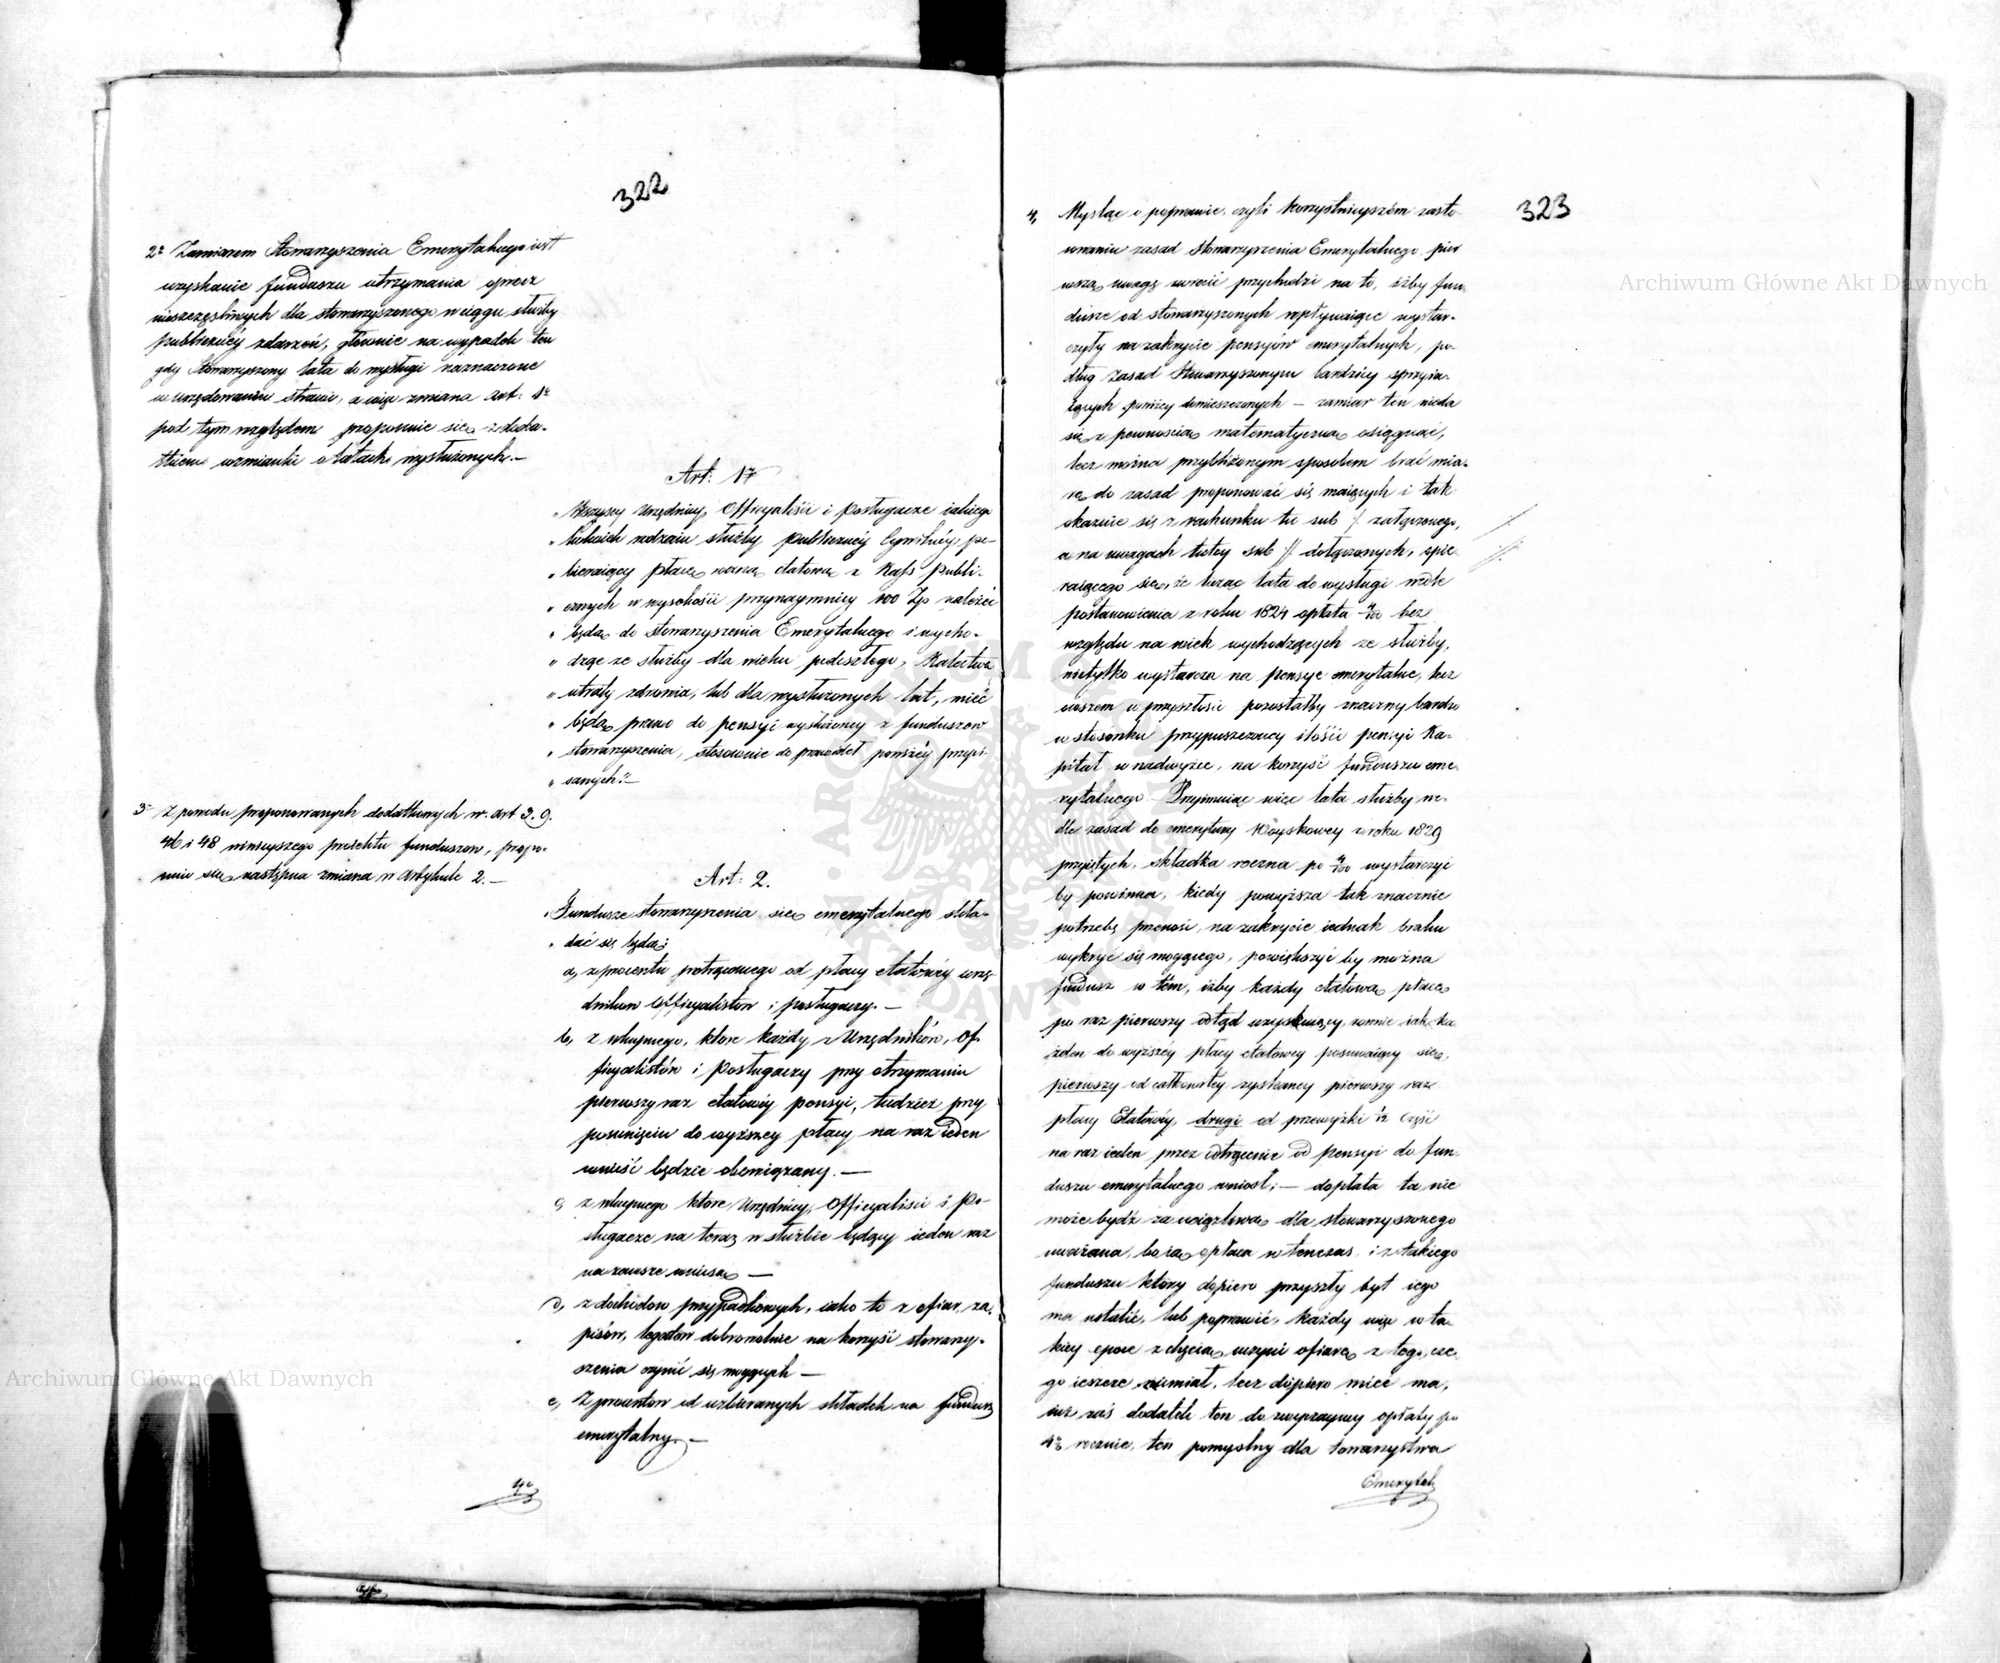 322
2º Zamiarem Stowarzyszenia Emerytalnego iest
uzyskanie funduszu utrzymania oprócz
nieszczęśliwych dla stowarzyszonego w ciągu służby
publicznéy zdarzeń, głównie na wypadek ten
gdy Stowarzyszony lata do wysługi naznaczone
w urzędowaniu strawi, a więc zmiana art: 1º
pod tym względem proponuie się z doda-
tkiem wzmianki o latach wysłużonych.—
Art: 1º
„Wszyscy Urzędnicy, Officyaliści i Posługacze iakiego
„kolwiek rodzaiu służby publicznéy Cywilnéy, po-
„bieraiący płacę roczną etatową z Kass Publi-
„cznych w wysokości przynaymniéy 100 Zp należeć
„będą do stowarzyszenia Emerytalnego i wycho-
„dząc ze służby dla wieku podeszłego, Kalectwa
„utraty zdrowia, lub dla wysłużonych lat, mieć
„będą prawo do pensyi wysłużoney z funduszów
„stowarzyszenia, stosownie do prawideł poniżéy przepi-
„sanych.”
3º Z powodu proponowanych dodatkowych w art 3. 9.
46 i 48 ninieyszego proiektu funduszów, propo-
nuie się następna zmiana w Artykule 2.—
Art: 2.
„Fundusze stowarzyszenia się emerytalnego skła-
„dać się będą:
a, z procentu potrąconego od płacy etatowéy urzę
dników Officyalistów i posługaczy.—
b, z wkupnego, które każdy z Urzędników, Of-
ficyalistów i Posługaczy przy otrzymaniu
pierwszy raz etatowéy pensyi, tudzież przy
posunięciu do wyższey płacy na raz ieden
wnieść będzie obowiązany.—
c, z wkupnego które Urzędnicy, Officyaliści i Po-
sługacze na teraz w służbie będący ieden raz
na zawsze wniosą —
d, z dochodów przypadkowych, iako to z ofiar, za-
pisów, legatów dobrowolnie na korzyść stowarzy-
szenia czynić się mogących —
e, Z procentów od uzbieranych składek na fundusz
emerytalny.—
4º
323
4, Myśląc o poprawie, czyli korzystnieyszém zasto-
owaniu zasad Stowarzyszenia Emerytalnego, pier
wszą uwagę zwrócić przychodzi na to, iżby fun-
dusze od stowarzyszonych wpływaiące wystar-
czyły na zakrycie pensyów emerytalnych, po-
dług Zasad Stowarzyszonym bardziéy sprzyia-
iących poniżéy umieszczonych — zamiar ten nieda
się z pewnością matematyczną osiągnąć,
lecz można przybliżonym sposobem brać mia-
rę do zasad proponować się maiących i tak
okazuie się z rachunku tu sub /. załączonego,
a na uwagach tutey sub //. dołączonych, opie-
raiącego się, że licząc lata do wysługi wedle
postanowienia z roku 1824 opłata 4/100 bez
względu na wiek wychodzących ze służby,
nietylko wystarcza na pensye emerytalne, lecz
owszem w przyszłości pozostałby znaczny bardzo
w stosunku przypuszczoney ilości pensyi Ka-
pitał w nadwyżce, na korzyść funduszu eme-
rytalnego. Przyimuiąc więc lata służby we-
dle zasad do emerytury Woyskowey w roku 1829
przyiętych, składka roczna po 4/100 wystarczyć
by powinna, kiedy powyższa tak znacznie
potrzebę przenosi, na zakrycie iednak braku
wykryć się mogącego, powiększyć by można
fundusz w tém, iżby każdy etatową płacę
po raz pierwszy odtąd uzyskuiący, równie iak ka
żden do wyższéy płacy etatowey posuwaiący się,
pierwszy od całkowitey zyskaney pierwszy raz
płacy Etatowéy, drugi od przewyżki 1/12 Część
na raz ieden przez odtrącenie od pensyi do fun-
duszu emerytalnego wniósł; — dopłata ta nie
może bydź za uciążliwą dla stowarzyszonego
uważana, bo ią opłaca w tenczas i z takiego
funduszu który dopiero przyszły byt iego
ma ustalić, lub poprawić, każdy więc w ta-
kiéy epoce z chęcią uczyni ofiarę z tego, cze-
go ieszcze niemiał, lecz dopiero mieć ma,
iuż zaś dodatek ten do zwyczayney opłaty po
4% rocznie, ten pomyślny dla towarzystwa
Emerytal
/.
//.
Archiwum Główne Akt Dawnych
Archiwum Główne Akt Dawnych